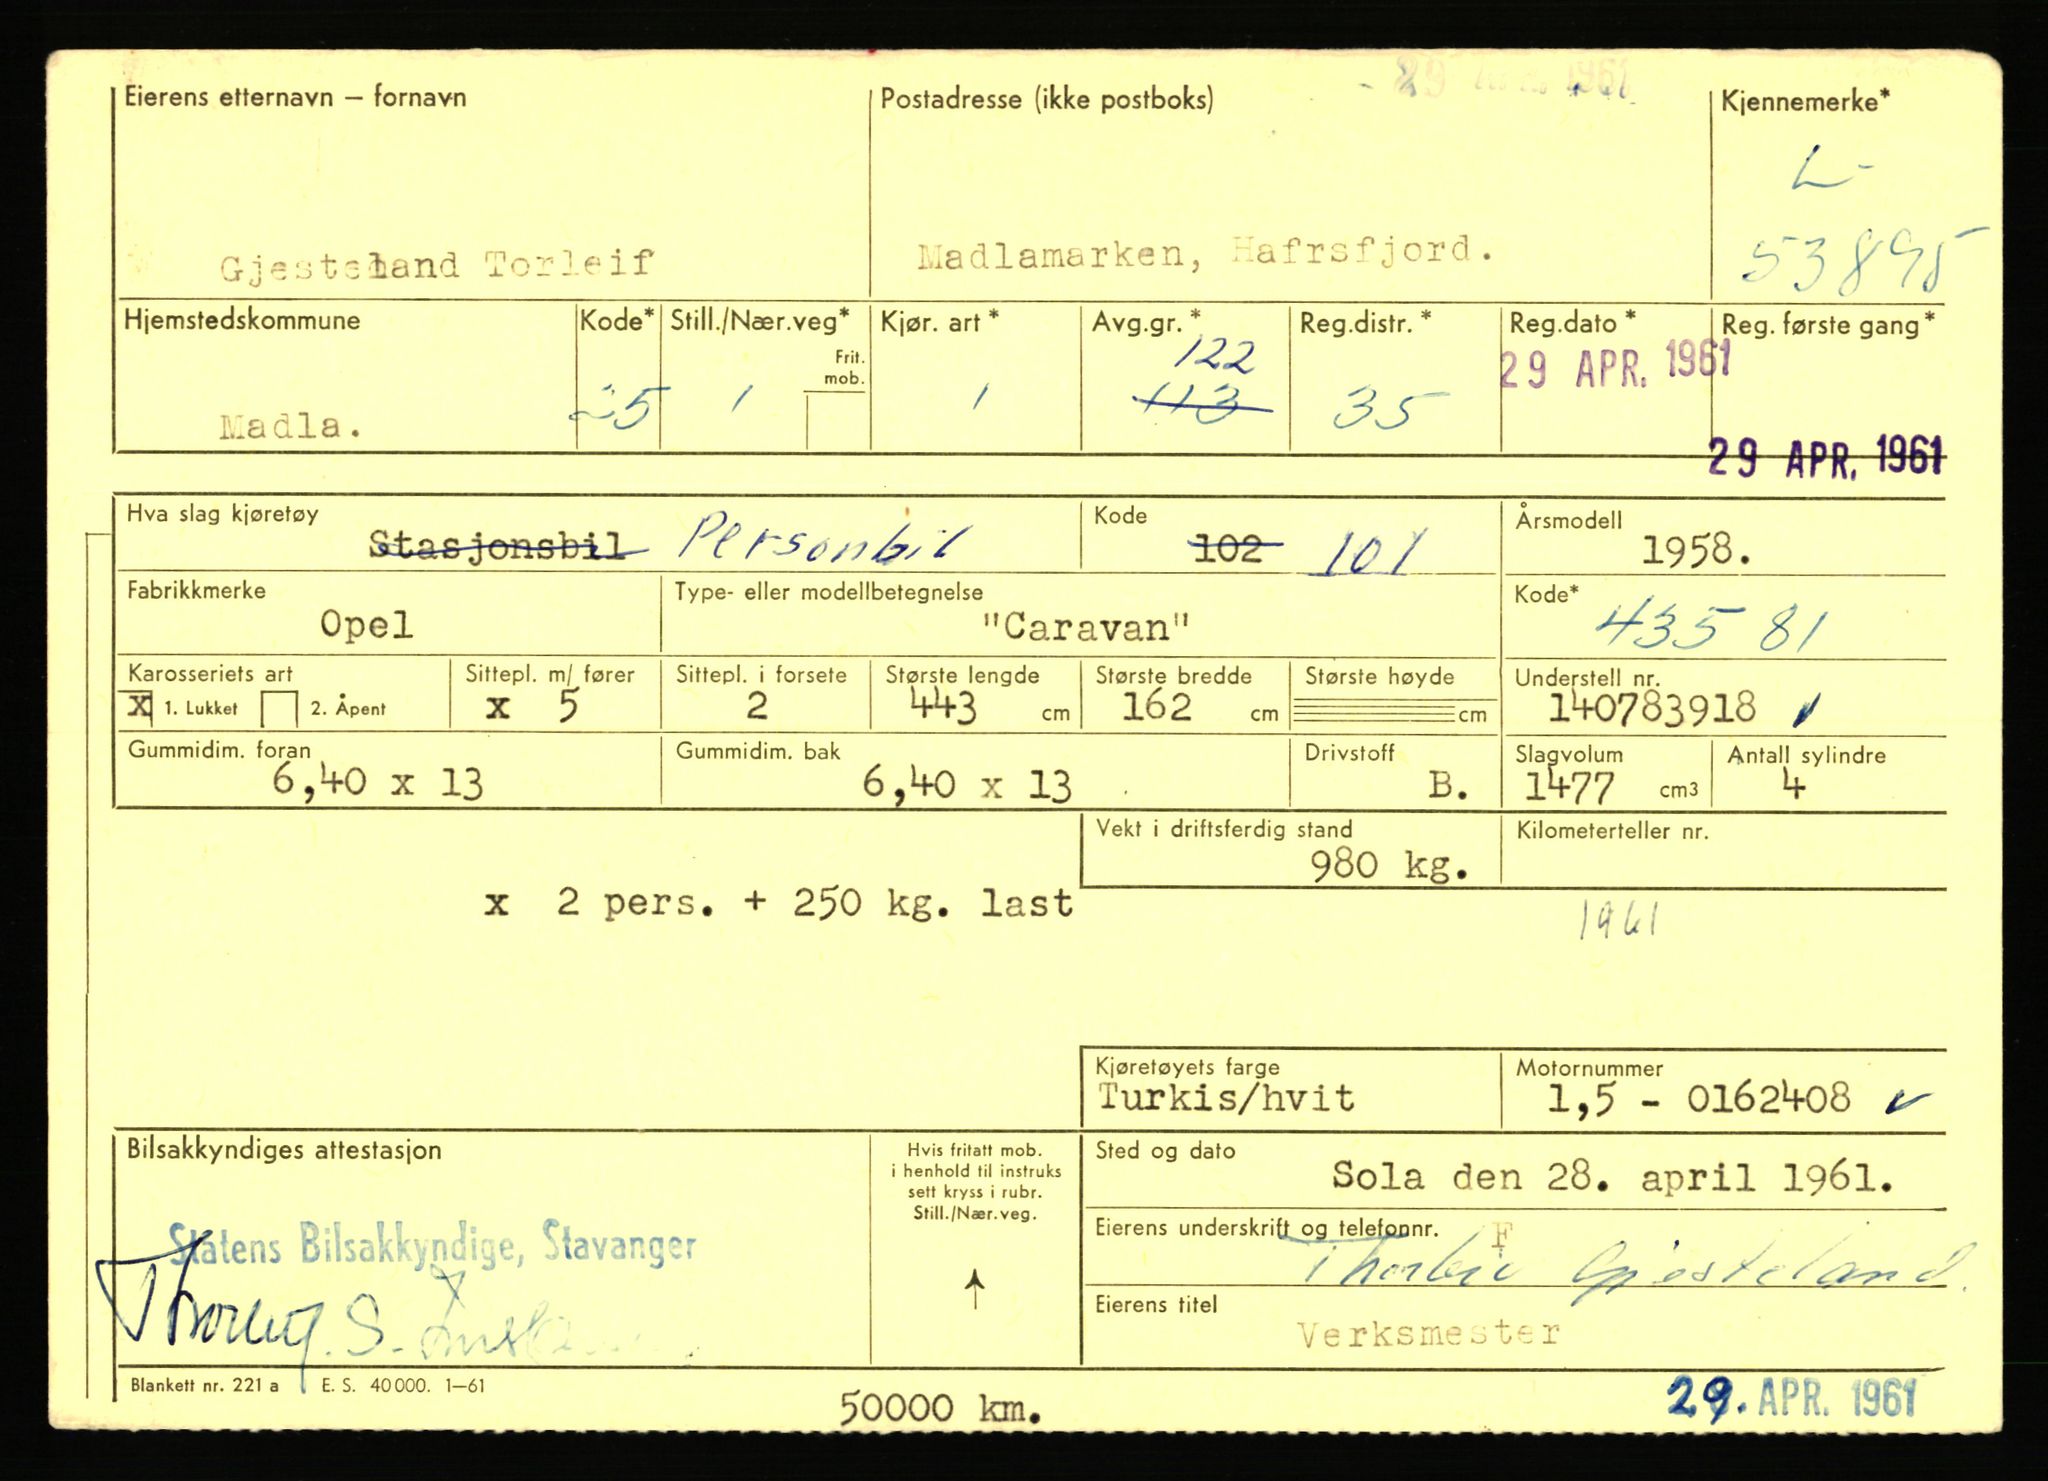 29 1961
Eierens etternavn – fornavn
Postadresse (ikke postboks)
Kjennemerke*
L-
53895
Gjesteland Torleif
Madlamarken, Hafrsfjord.
Hjemstedskommune
Kode*
Still./Nær.veg*
Kjør. art*
Avg.gr.*
Reg.distr.*
Reg.dato*
Reg. første gang*
Frit.
mob.
122
29 APR. 1961
Madla.
25
1
1
113
35
29 APR. 1961
Hva slag kjøretøy
Stasjonsbil Personbil
Kode
102 101
Årsmodell
1958.
Fabrikkmerke
Opel
Type- eller modellbetegnelse
"Caravan"
Kode*
43581
Karosseriets art
X 1. Lukket 2. Åpent
Sittepl. m/ fører
x 5
Sittepl. i forsete
2
Største lengde
443 cm
Største bredde
162 cm
Største høyde
cm
Understell nr.
140783918
Gummidim. foran
6,40 x 13
Gummidim. bak
6,40 x 13
Drivstoff
B.
Slagvolum
1477 cm3
Antall sylindre
4
Vekt i driftsferdig stand
980 kg.
Kilometerteller nr.
x 2 pers. + 250 kg. last
1961
Kjøretøyets farge
Turkis/hvit
Motornummer
1,5 - 0162408
Bilsakkyndiges attestasjon
Hvis fritatt mob.
i henhold til instruks
sett kryss i rubr.
Still./Nær.veg.
Sted og dato
Sola den 28. april 1961.
Statens Bilsakkyndige, Stavanger
Eierens underskrift og telefonnr. F
Gjesteland
S.
Eierens titel
Verksmester
Blankett nr. 221 a E. S. 40 000. 1–61
50000 km.
29. APR. 1961